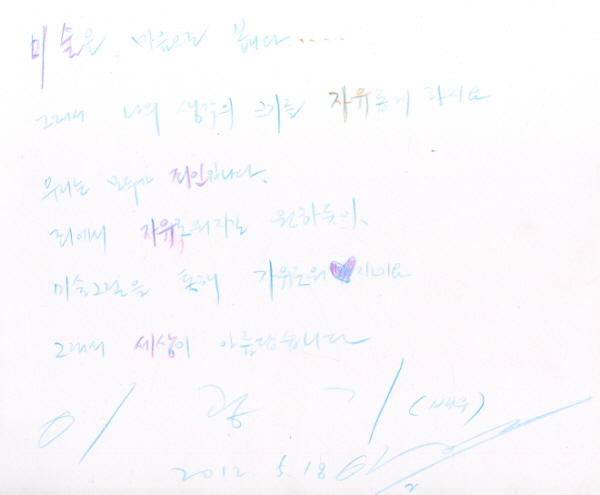 미술은 마음으로 봅니다.....
그래서 나의 생각의 크기를 자유롭게 하지요
우리는 모두가 죄인입니다.
죄에서 자유로워지길 원하듯이,
미술그림을 통해 자유로워지네요
그래서 세상이 아름답습니다
이 광 기 (배우)
2012. 5. 18